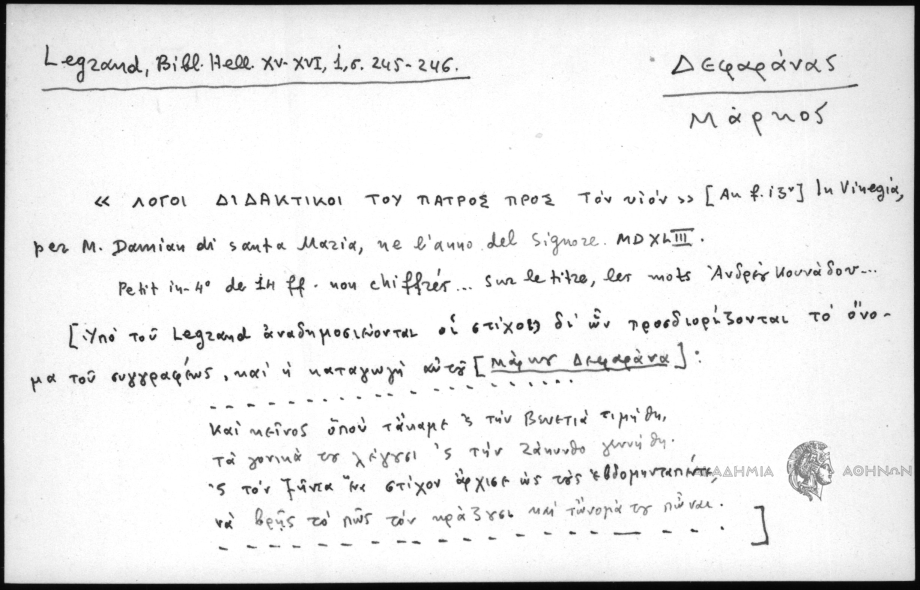 Legrand, Bibl. Hell. XV-XVI, 1, σ. 245-246.
Δεφαράνας
Μάρκος
« ΛΟΓΟΙ ΔΙΔΑΚΤΙΚΟΙ ΤΟΥ ΠΑΤΡΟΣ ΠΡΟΣ Τόν υἱόν » [Au f. 13ᵛ] In Vinegia,
per M. Damian di santa Maria, ne l'anno del Signore. MDXLIII.
Petit in-4° de 14 ff. non chiffrés... sur le titre, les mots Ἀνδρέου Κουνάδου...
[Ὑπό τοῦ Legrand ἀναδημοσιεύονται οἱ στίχοι δι' ὧν προσδιορίζονται τό ὄνο-
μα τοῦ συγγραφέως, καί ἡ καταγωγή αὐτοῦ [Μάρκου Δεφαράνα]:
Καί κεῖνος ὁπού τἄκαμε 'ς τήν Βενετιά τιμήθη,
τά γονικά του λέγουσι 'ς τήν Ζάκυνθο γεννήθη.
'ς τόν ἕνα στίχον ἄρχισε ὡς τούς ἑβδομηνταπέντε,
νά βρῇς τό πῶς τόν κράζουσι καί τὤνομά του πὦναι.]
ΑΚΑΔΗΜΙΑ ΑΘΗΝΩΝ